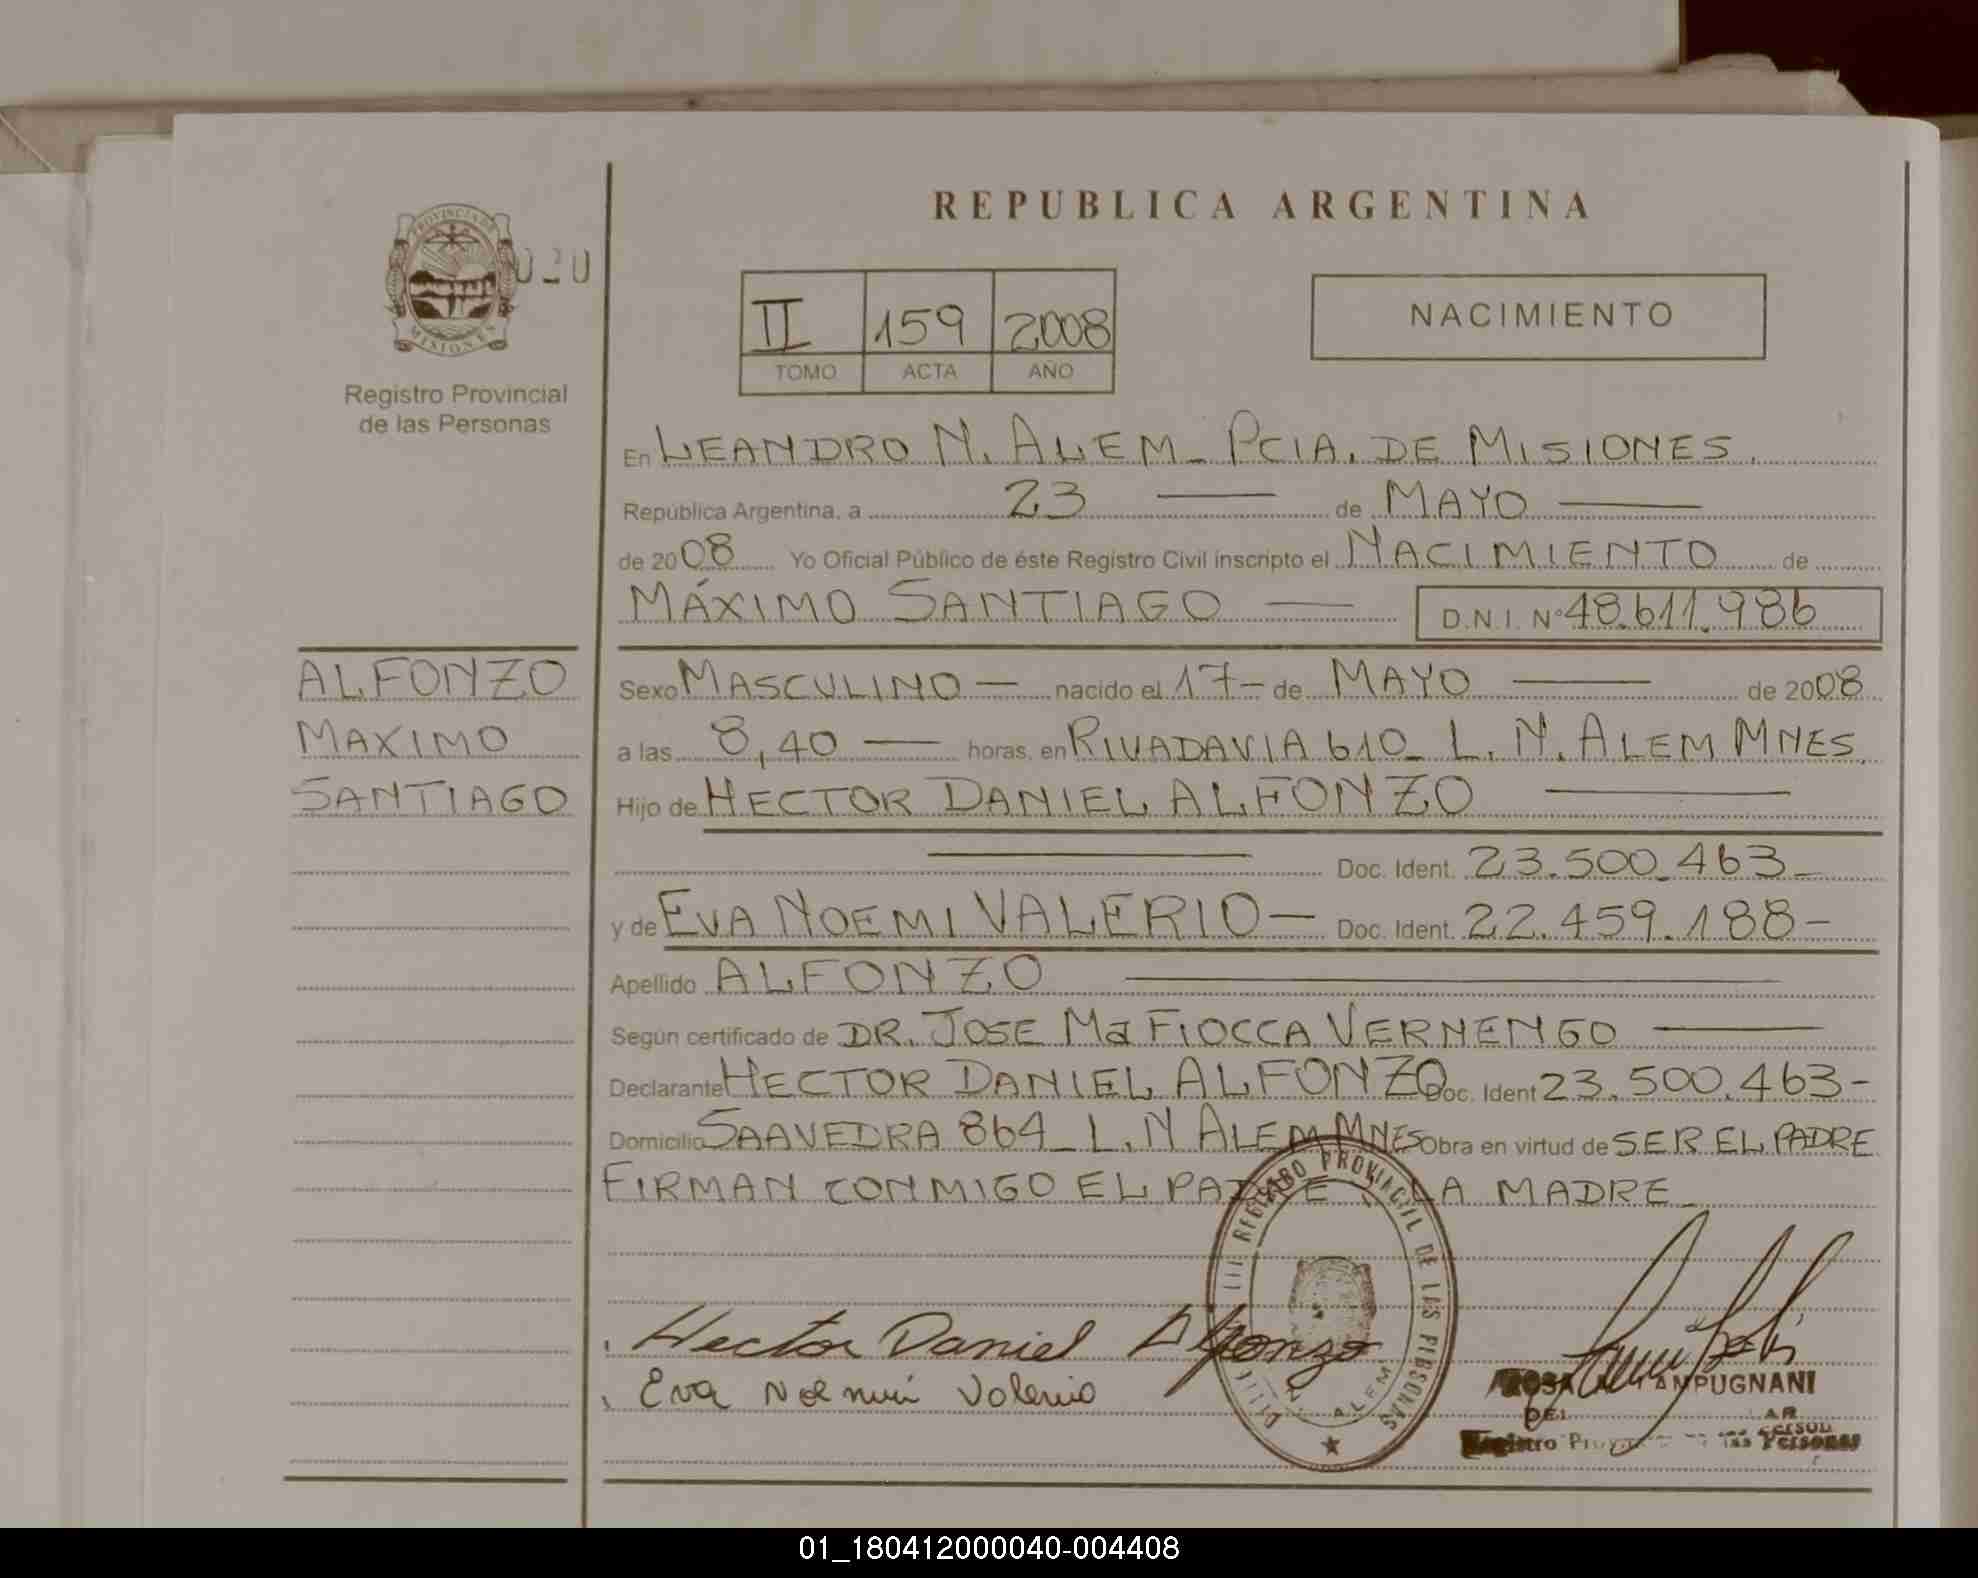 REPUBLICA ARGENTINA
PROVINCIA DE
MISIONES
020
Registro Provincial
de las Personas
II 159 2008
TOMO ACTA AÑO
NACIMIENTO
En LEANDRO N. ALEM - PCIA. DE MISIONES.
República Argentina, a 23 — de MAYO —
de 2008 Yo Oficial Público de éste Registro Civil inscripto el NACIMIENTO de
MÁXIMO SANTIAGO — D.N.I. Nº 48.611.986
ALFONZO
MAXIMO
SANTIAGO
Sexo MASCULINO — nacido el 17 - de MAYO — de 2008
a las 8,40 — horas, en RIVADAVIA 610 - L. N. ALEM MNES.
Hijo de HECTOR DANIEL ALFONZO —
— Doc. Ident. 23.500.463 -
y de EVA NOEMI VALERIO — Doc. Ident. 22.459.188 -
Apellido ALFONZO —
Según certificado de DR. JOSE Ma FIOCCA VERNENGO —
Declarante HECTOR DANIEL ALFONZO Doc. Ident 23.500.463 -
Domicilio SAAVEDRA 864 - L. N ALEM MNES Obra en virtud de SER EL PADRE
FIRMAN CONMIGO EL PADRE LA MADRE -
REGISTRO PROVINCIAL DE LAS PERSONAS
N. ALEM
Hector Daniel Alfonzo
Eva Noemi Valerio
ROSA LAMPUGNANI
Registro
las Personas
01_180412000040-004408